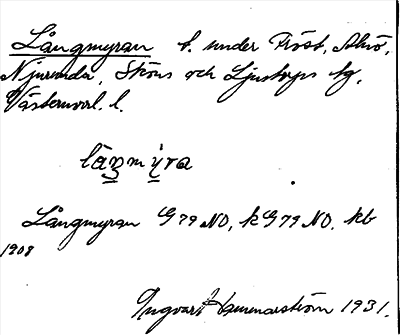 Långmyran t. under Fröst, Alnö,
Njurunda, Sköns och Ljustorps tg,
Västernorrl. l.
låŋmỳra
Långmyran G 79 NO, k G 79 NO. kb
1908
Ingvar Hammarström 1931.